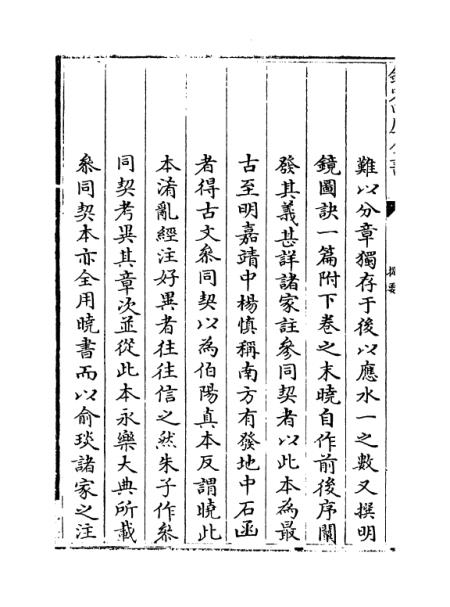 難以分章獨存于後以應水一之數又撰明
鏡圖訣一篇附下卷之末曉自作前後序闡
發其義甚詳諸家註參同契者以此本為最
古至明嘉靖中楊慎稱南方有發地中石函
者得古文叅同契以為伯陽真本反謂曉此
本淆亂經注好異者往往信之然朱子作叅
同契考異其章次並從此本永樂大典所載
叅同契本亦全用曉書而以俞琰諸家之注